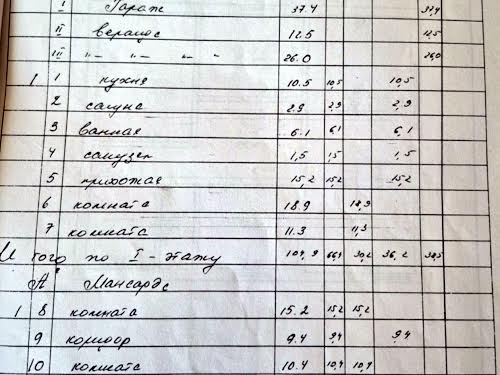 I Гараж 37.4 37,4
II веранда 12.5 12,5
III -"- -"- -"- " 26.0 26,0
1 1 кухня 10.5 10,5 10,5
2 сауна 2.9 2,9 2,9
3 ванная 6.1 6,1 6,1
4 санузел 1,5 1,5 1,5
5 прихожая 15,2 15,2 15,2
6 комната 18.9 18,9
7 комната 11.3 11,3
Итого по I-этажу 66,4 30,2 36,2
А Мансарда
1 8 комната 15.2 15,2 15,2
9 коридор 9.4 9,4 9,4
10 комната 10.4 10,4 10,4